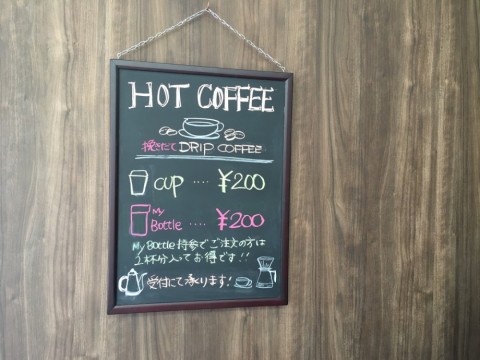 HOT COFFEE
挽きたて DRIP COFFEE
cup .... ¥200
My Bottle .... ¥200
My Bottle 持参でご注文の方は
1杯分入ってお得です!!
受付にて承ります!